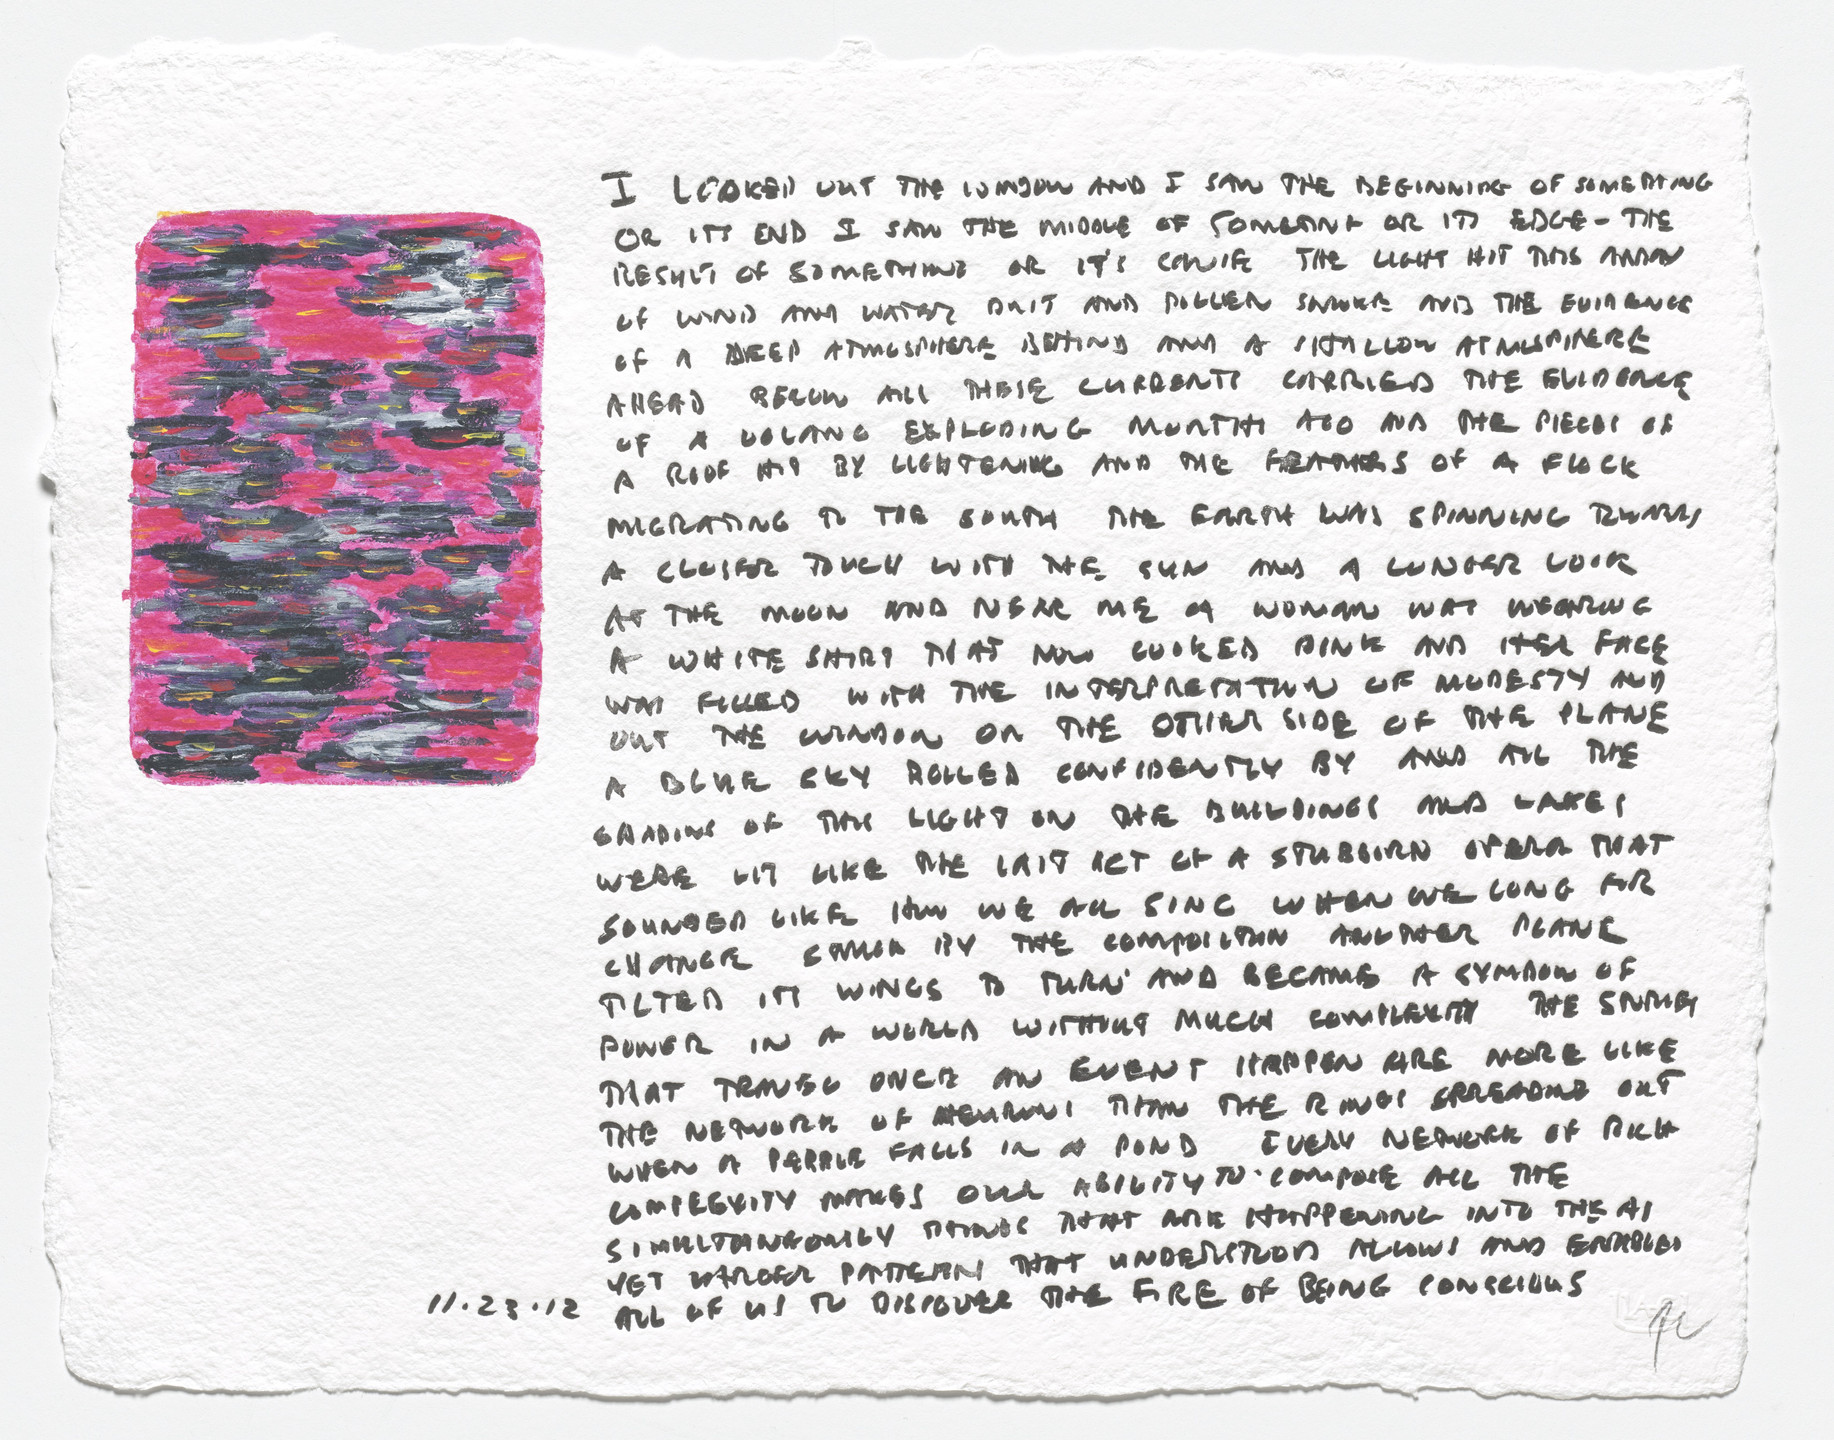 I LOOKED OUT THE WINDOW AND I SAW THE BEGINNING OF SOMETHING
OR ITS END I SAW THE MIDDLE OF SOMETHING OR ITS EDGE - THE
RESULT OF SOMETHING OR IT'S CAUSE THE LIGHT HIT THIS ARRAY
OF WIND AND WATER DUST AND POLLEN SMOKE AND THE EVIDENCE
OF A DEEP ATMOSPHERE BEHIND AND A SHALLOW ATMOSPHERE
AHEAD BELOW ALL THESE CURRENTS CARRIED THE EVIDENCE
OF A VOLCANO EXPLODING MONTHS AGO AND THE PIECES OF
A ROOF HIT BY LIGHTENING AND THE FEATHERS OF A FLOCK
MIGRATING TO THE SOUTH THE EARTH WAS SPINNING TOWARDS
A CLOSER TOUCH WITH THE SUN AND A LONGER LOOK
AT THE MOON AND NEAR ME A WOMAN WAS WEARING
A WHITE SHIRT THAT NOW LOOKED PINK AND HER FACE
WAS FILLED WITH THE INTERPRETATION OF MODESTY AND
OUT THE WINDOW ON THE OTHER SIDE OF THE PLANE
A BLUE SKY ROLLED CONFIDENTLY BY AND ALL THE
OF THIS LIGHT ON THE BUILDINGS AND LAKES
WERE LIT LIKE THE LAST ACT OF A STUBBORN OPERA THAT
SOUNDED LIKE HOW WE ALL SING WHEN WE LONG FOR
CHANGE BY THE COMPOSITION ANOTHER PLANE
TILTED ITS WINGS TO TURN AND BECAME A SYMBOL OF
POWER IN A WORLD WITHOUT MUCH COMPLEXITY THE STORIES
THAT TRAVEL ONCE AN EVENT HAPPEN ARE MORE LIKE
THE NETWORK OF NEURONS THAN THE RINGS SPREADING OUT
WHEN A PEBBLE FALLS IN A POND EVERY NETWORK OF RICH
COMPLEXITY MAKES OUR ABILITY TO COMPOSE ALL THE
SIMULTANEOUSLY THINGS THAT ARE HAPPENING INTO THE AS
YET LARGER PATTERN THAT UNDERSTOOD ALLOWS AND ENABLES
11.23.12 ALL OF US TO DISCOVER THE FIRE OF BEING CONSCIOUS